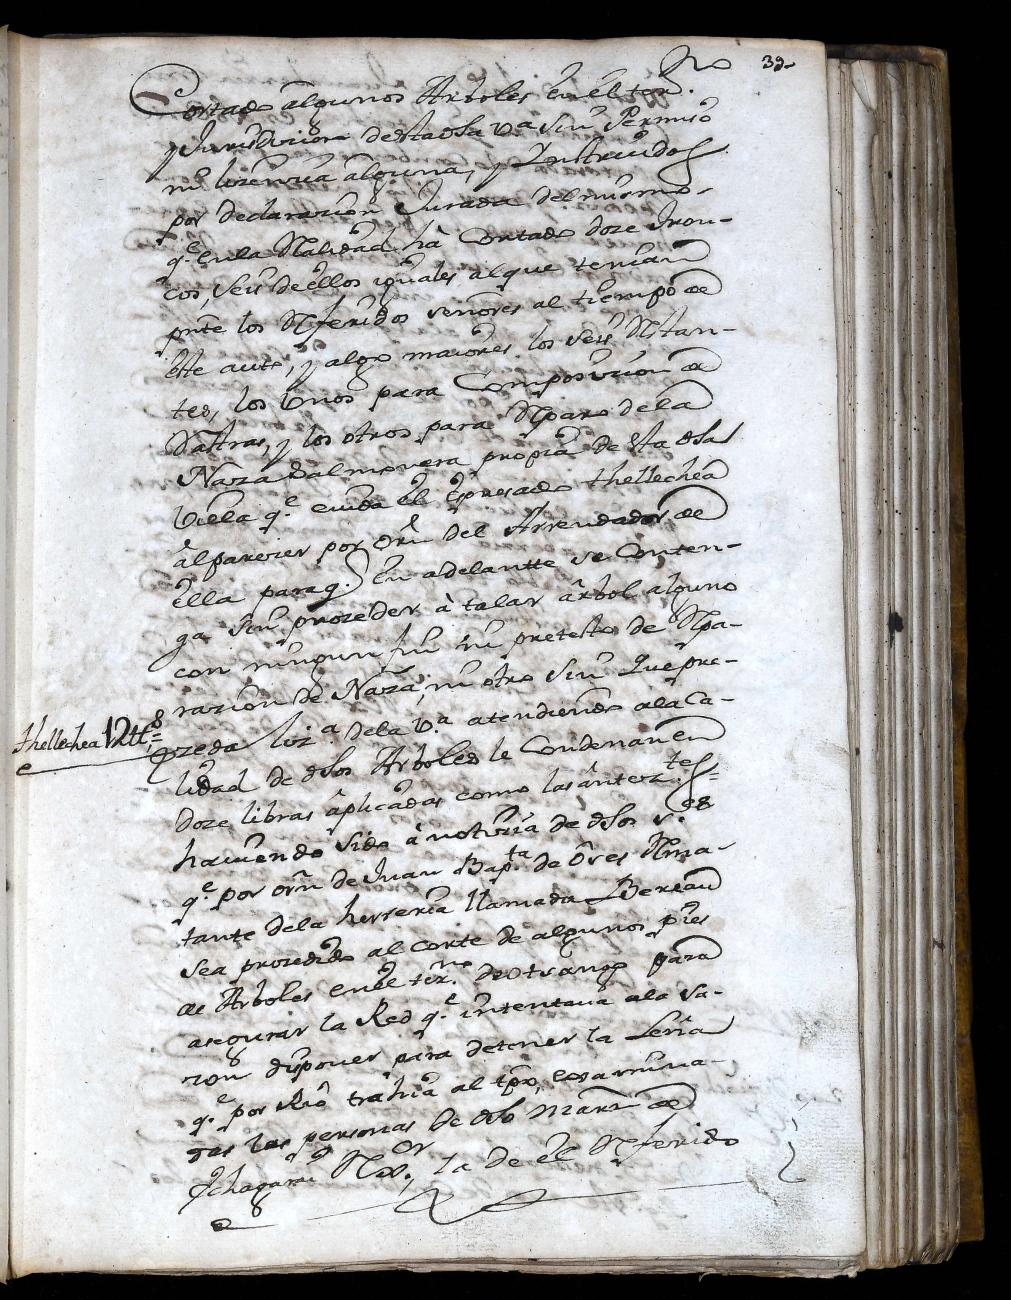 39
no
Cortado algunos Arboles en el ter.
y Jurisdicion desta dha va sin Permiso
ni lizencia alguna, y Instruidos
por declarazion Jurada del mismo
q.e en la Realidad hà Cortado doze tron-
cos, seis de ellos iguales al que tenian
pnte los Referidos señores al tiempo de
este auto, y algo maiores los seis Restan-
tes, los Unos para Composicion de
Sastras, y los otros para Reparo de la
Naza Salmonera propia desta dha
Villa q.e cuida el Expresado thellechea
al parezer por orn del Arrendador de
ella para q. en adelantte se Conten-
ga sin prozeder à talar árbol alguno
con ningun fin ni pretesto de Repa-
razion de Naza, ni otro sin que pre-
zeda liz.a dela v.a atendiendo ala Ca-
thellechea 12 tt.s =
lidad de dhos Arboles le Condenan en
doze libras aplicadas como las anteze.tes =
haviendo sido à noticia de dhos s.res
q.e por orn de Juan Bap.ta de Ores Rma-
tante dela herreria llamada Bereau
sea prozedido al corte de algunos pies
de Arboles en el ter.no de otrango para
asegurar la Red q.e intentava ala sa-
zon disponer para detener la Leña
q.e por Rio trahia al tpo, exsamina-
das las personas de dho Martn de
Ichagarai Rex.or la de el Referido